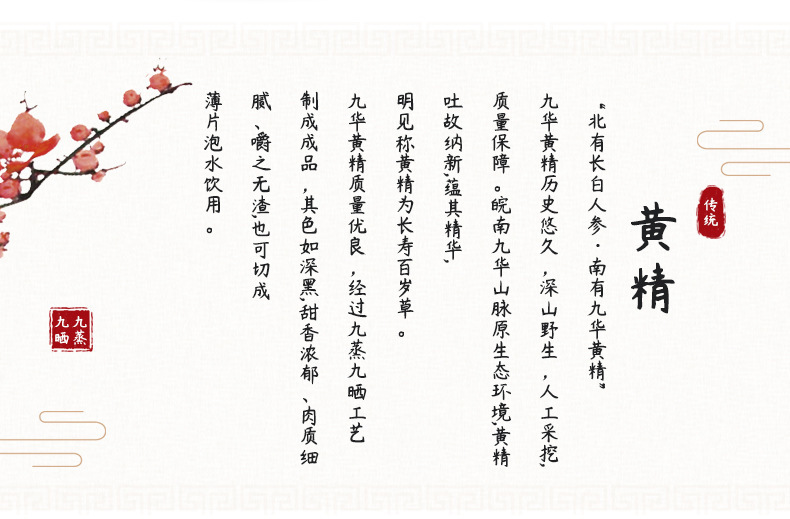 传统
黄精
“北有长白人参·南有九华黄精”
九华黄精历史悠久，深山野生，人工采挖，
质量保障。皖南九华山脉原生态环境，黄精
吐故纳新，蕴其精华，
明见称黄精为长寿百岁草。
九华黄精质量优良，经过九蒸九晒工艺
制成成品，其色如深黑，甜香浓郁、肉质细
腻、嚼之无渣，也可切成
薄片泡水饮用。
九蒸
九晒